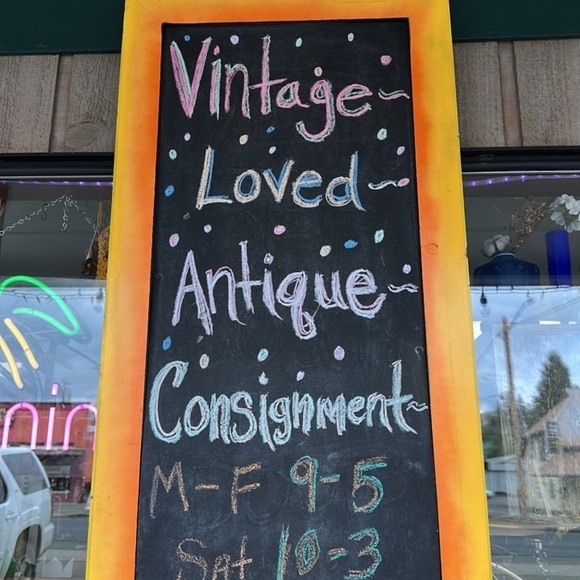 Vintage~
Loved~
Antique~
Consignment~
M-F 9-5
Sat 10-3